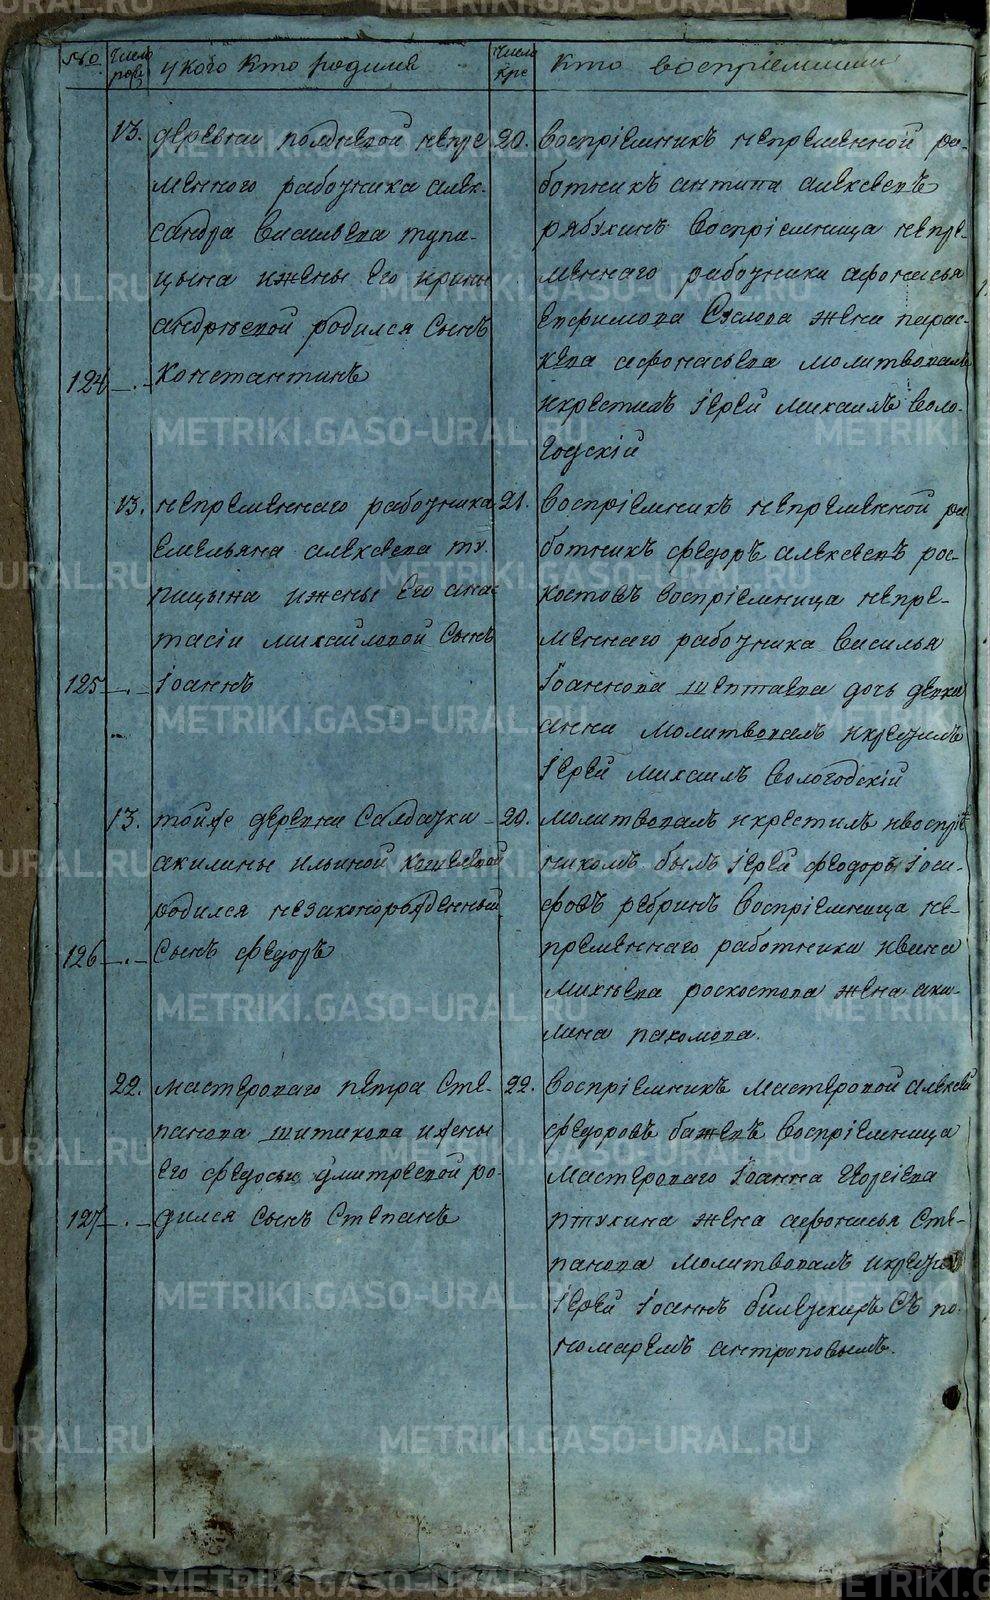 № Число рож у кого кто родился Число кре кто воспріемники
13. деревни полдневой непре
менного работника алек
сандра васильева тупи
цына и жены его ирины
андреевой родился сынъ
124 константинъ
20. воспріемникъ непременной ра
ботникъ антипа алексеевъ
рябухинъ воспріемница непре
меннаго работника афонасья
ефимова жена парас
кева афонасьева молитвовалъ
и крестилъ іерей михаилъ воло
годскій
13. непременнаго работника
емельяна алексеева ту
пицына и жены его анас
тасіи михайловой сынъ
125 іоаннъ
21. воспріемникъ непременной ра
ботникъ федоръ алексеевъ рос
костовъ воспріемница непре
меннаго работника василья
іоаннова шептаева дочь девка
анна молитвовалъ и крестилъ
іерей михаилъ вологодскій
13. тойже деревни салдатки
акилины ильиной
родился незаконорожденный
126 сынъ федоръ
20. молитвовалъ и крестилъ и воспріе
никомъ былъ іерей феодоръ іоси
фовъ ребринъ воспріемница не
пременнаго работника ивана
михеева роскостова жена аки
лина пахомова.
22. мастероваго петра сте
панова шитикова и жены
его федосьи дмитревой ро
127 дился сынъ степанъ
22. воспріемникъ мастеровой алексей
федоровъ бажевъ воспріемница
мастероваго іоанна георгіева
птухина жена афонасья сте
панова молитвовалъ и крестил
іерей іоаннъ съ по
номаремъ антроповымъ.
METRIKI.GASO-URAL.RU